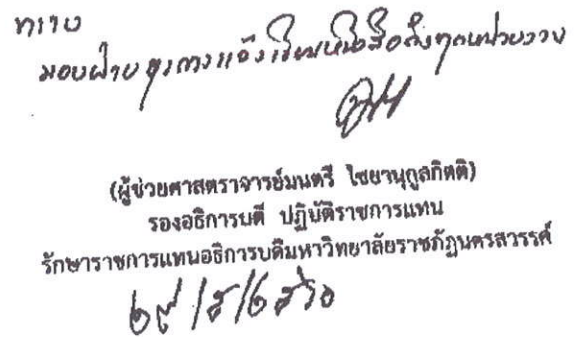 ทราบ
มอบฝ่ายธุรการแจ้งเวียนหนังสือถึงทุกหน่วยงาน
(ผู้ช่วยศาสตราจารย์มนตรี ไชยานุกูลกิตติ)
รองอธิการบดี ปฏิบัติราชการแทน
รักษาราชการแทนอธิการบดีมหาวิทยาลัยราชภัฏนครสวรรค์